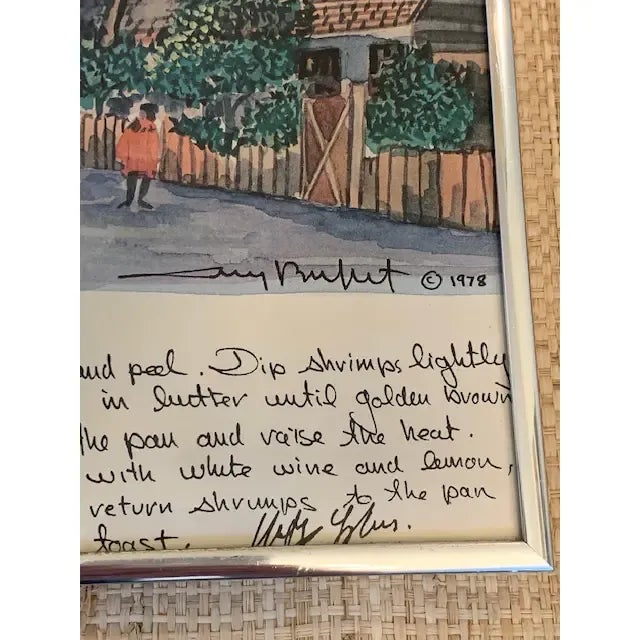 © 1978
and peel. Dip shrimps lightly
in butter until golden brown
the pan and raise the heat.
with white wine and lemon,
return shrimps to the pan
toast.